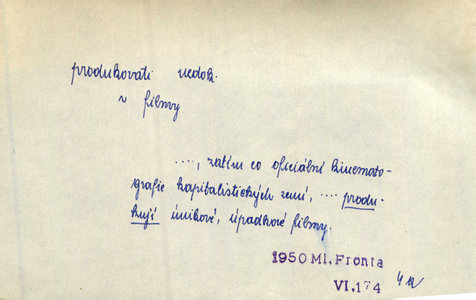 produkovati nedok.
v filmy
...., zatím co oficiální kinemato-
grafie kapitalistických zemí, .... produ-
kují únikové, úpadkové filmy.
1950 Ml. Fronta
VI.174